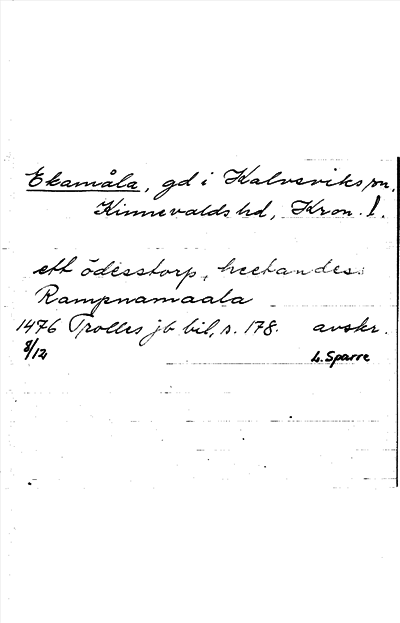 Ekamåla, gd i Kalvsviks sn,
Kinnevalds hd, Kron. l.
ett ödesstorp, heetandes
Rampnamaala
1476 Trolles jb bil, s. 178. avskr.
8/12 L. Sparre